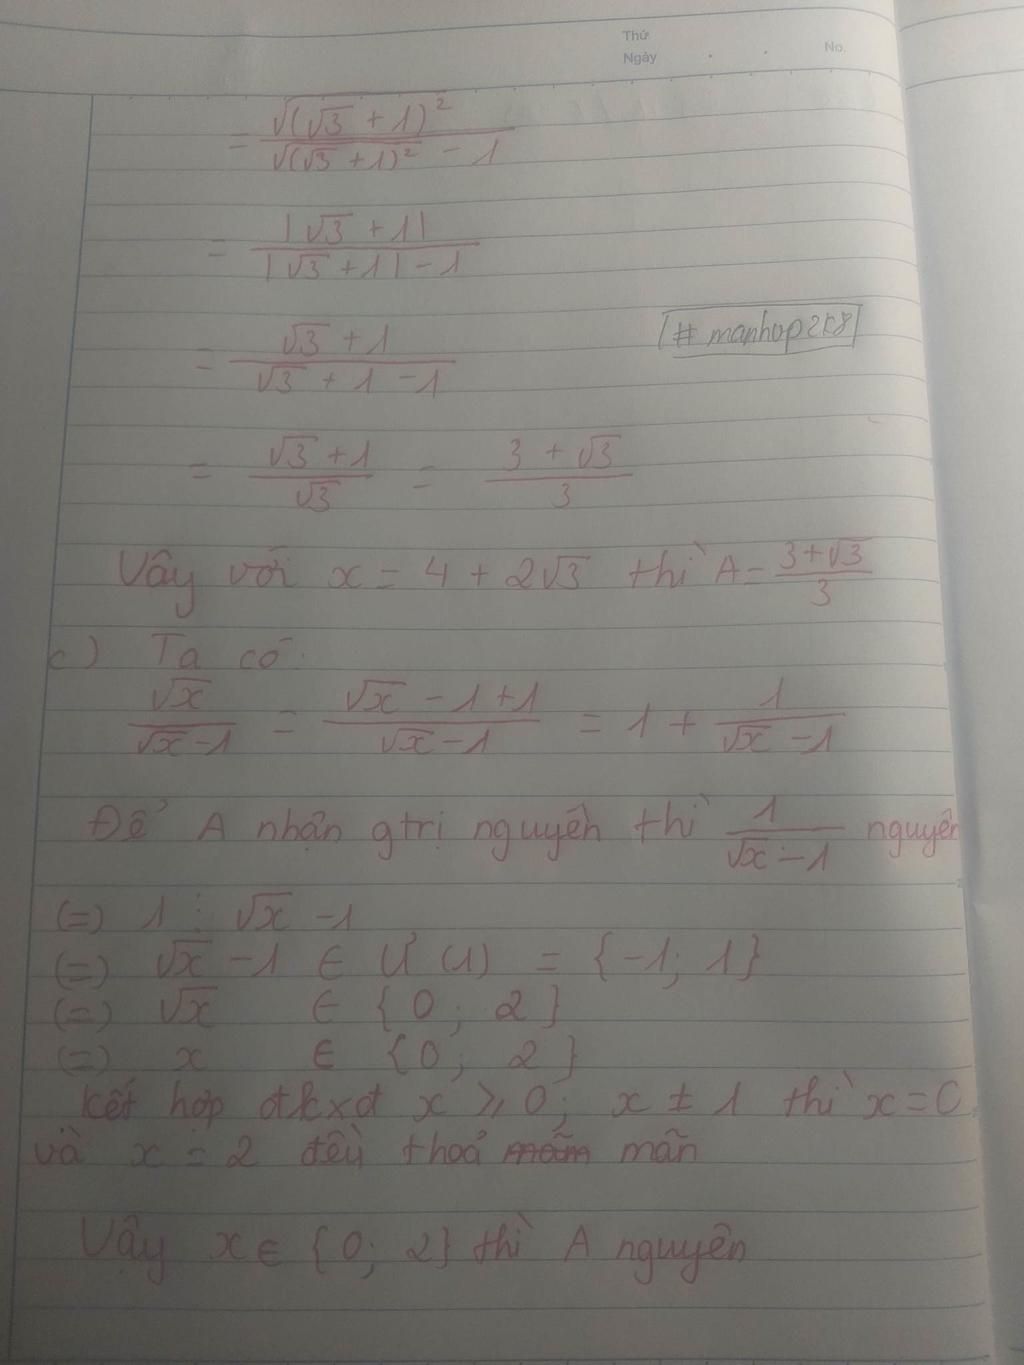 Thứ
Ngày . . No.
= √(√3 + 1)² / √(√3 + 1)² - 1
= |√3 + 1| / |√3 + 1| - 1
= √3 + 1 / √3 + 1 - 1
# manhop258
= √3 + 1 / √3 = 3 + √3 / 3
Vây với x = 4 + 2√3 thì A = 3+√3 / 3
c) Ta có:
√x / √x - 1 = √x - 1 + 1 / √x - 1 = 1 + 1 / √x - 1
Để A nhận gtrị nguyên thì 1 / √x - 1 nguyên
(=) 1 ⋮ √x - 1
(=) √x - 1 ∈ Ư (1) = {-1; 1}
(=) √x ∈ {0; 2}
(=) x ∈ {0; 2}
Kết hợp đkxđ x ⩾ 0; x ± 1 thì x = 0
và x = 2 đều thoả mãn
Vây x ∈ {0; 2} thì A nguyên